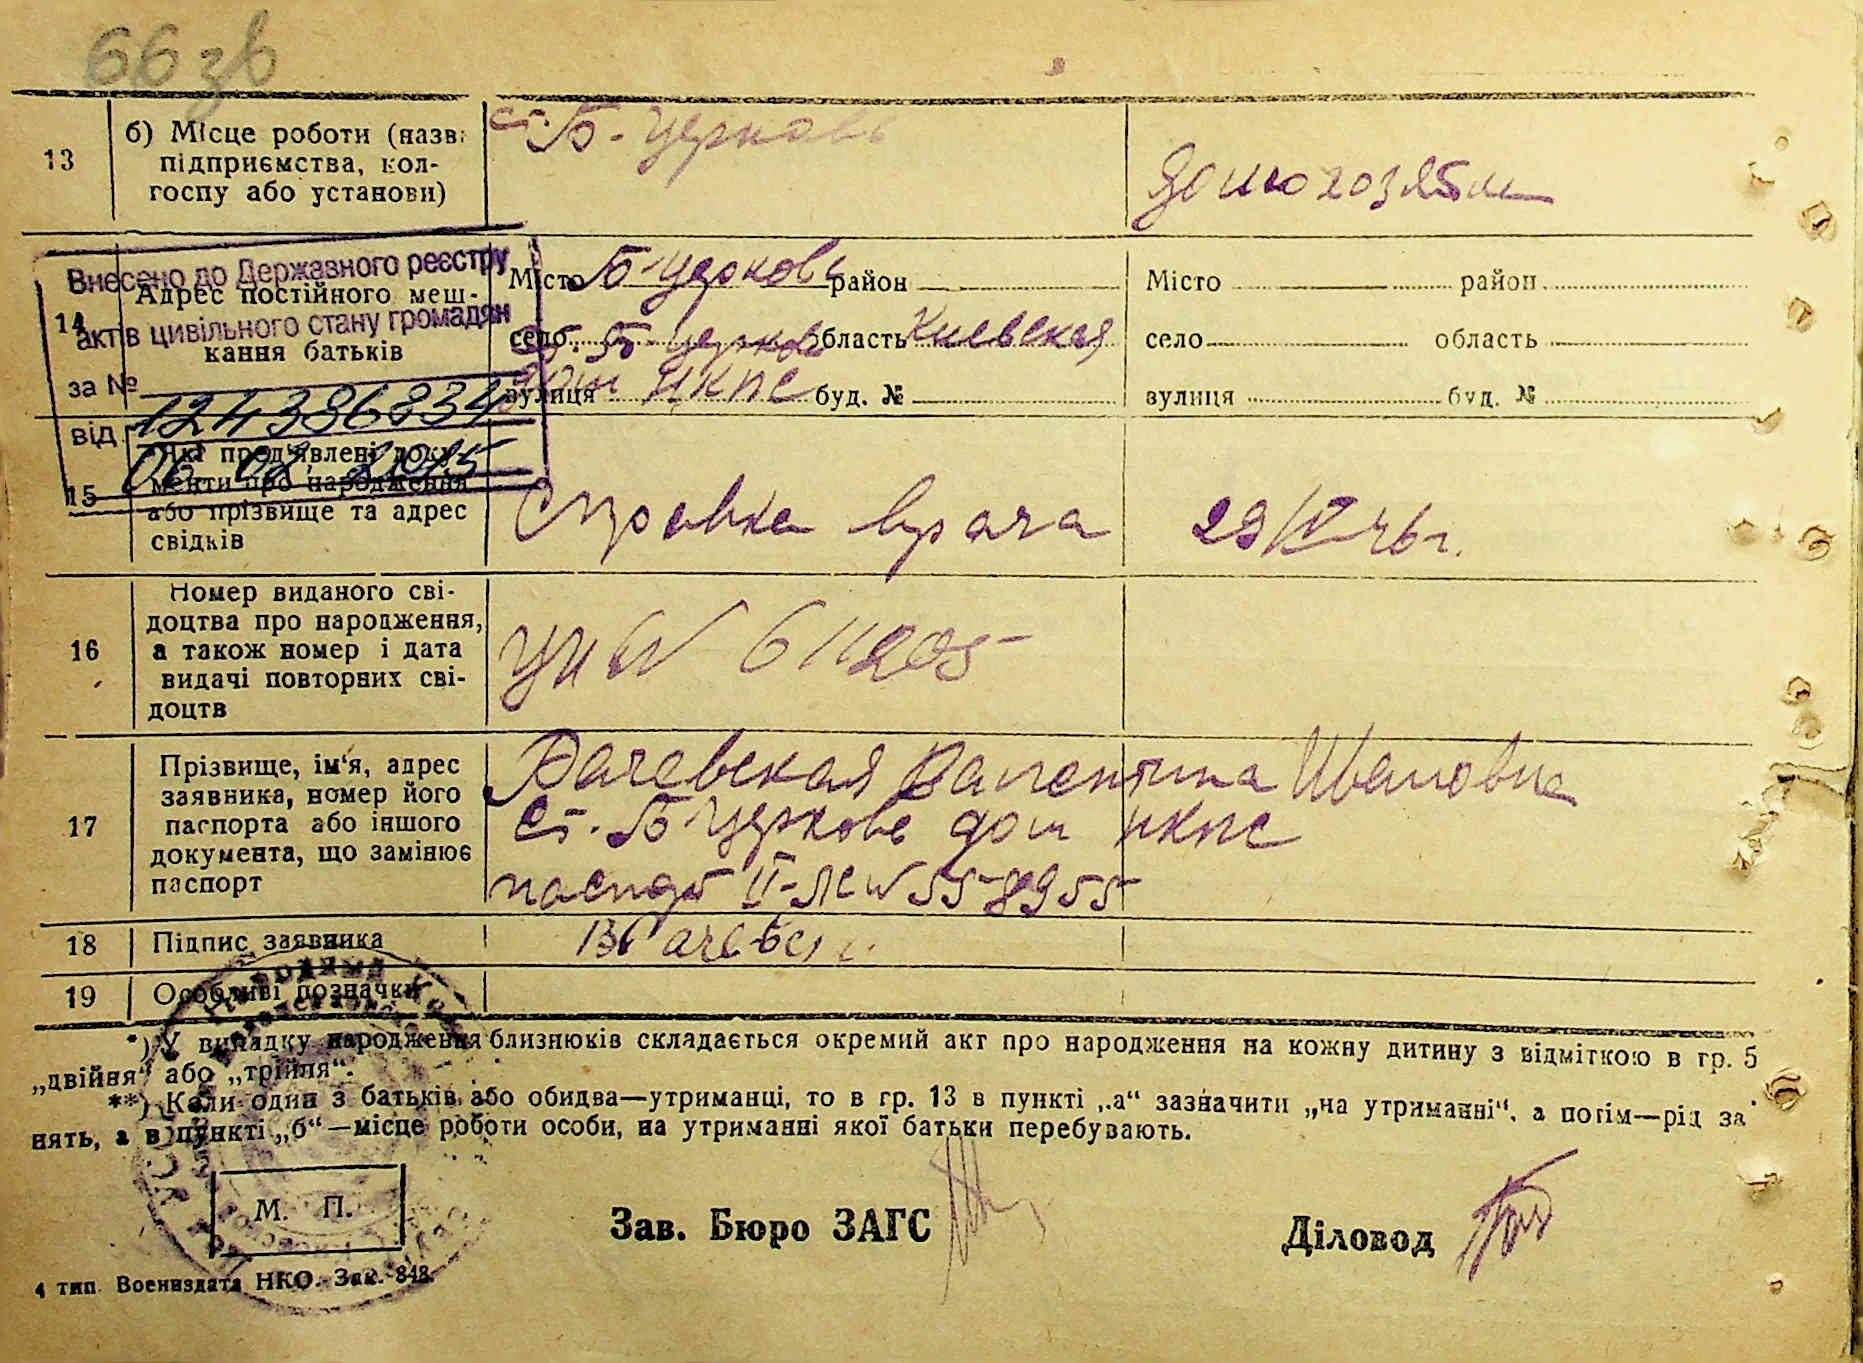 66 зв
13
б) Місце роботи (назва
підприємства, кол-
госпу або установи)
ст. Б-Церковь
домохозяйка
14
Адрес постійного меш-
кання батьків
Внесено до Державного реєстру
актів цивільного стану громадян
за № 124386834
від 06.02.2015
Місто Б-Церковь район
село ст. Б-Церковь область Киевская
вулиця дом НКПС буд. №
Місто район
село область
вулиця буд. №
15
Які пред'явлені доку-
менти про народження
або прізвище та адрес
свідків
Справка врача 29/IV 46 г.
16
Номер виданого сві-
доцтва про народження,
а також номер і дата
видачі повторних сві-
доцтв
№ 611205
17
Прізвище, ім'я, адрес
заявника, номер його
паспорта або іншого
документа, що замінює
паспорт
Валентина Ивановна
ст. Б-Церковь дом НКПС
паспорт II-ЛС № 558955
18
Підпис заявника
19
Особливі позначки
*) У випадку народження близнюків складається окремий акт про народження на кожну дитину з відміткою в гр. 5
„двійня“ або „трійня“.
**) Коли один з батьків або обидва—утриманці, то в гр. 13 в пункті „а“ зазначити „на утриманні“, а потім—рід за-
нять, а в пункті „б“—місце роботи особи, на утриманні якої батьки перебувають.
М. П.
Зав. Бюро ЗАГС
Діловод
4 тип. Воениздата НКО. Зак. 848.